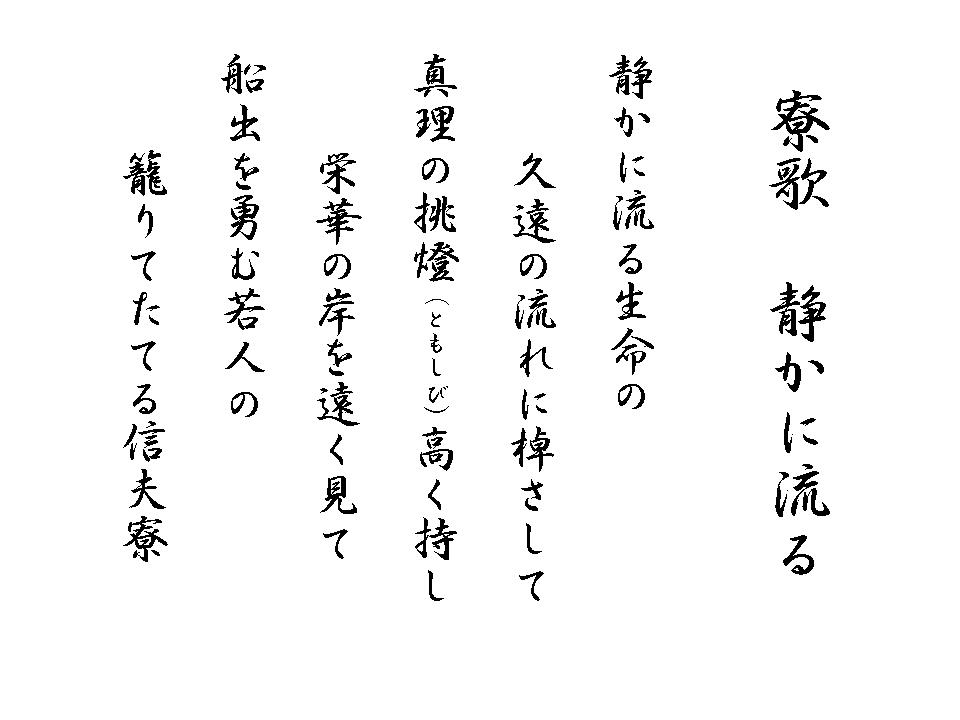 寮歌　静かに流る
静かに流る生命の
久遠の流れに棹さして
真理の挑燈（ともしび）高く持し
栄華の岸を遠く見て
船出を勇む若人の
籠りてたてる信夫寮